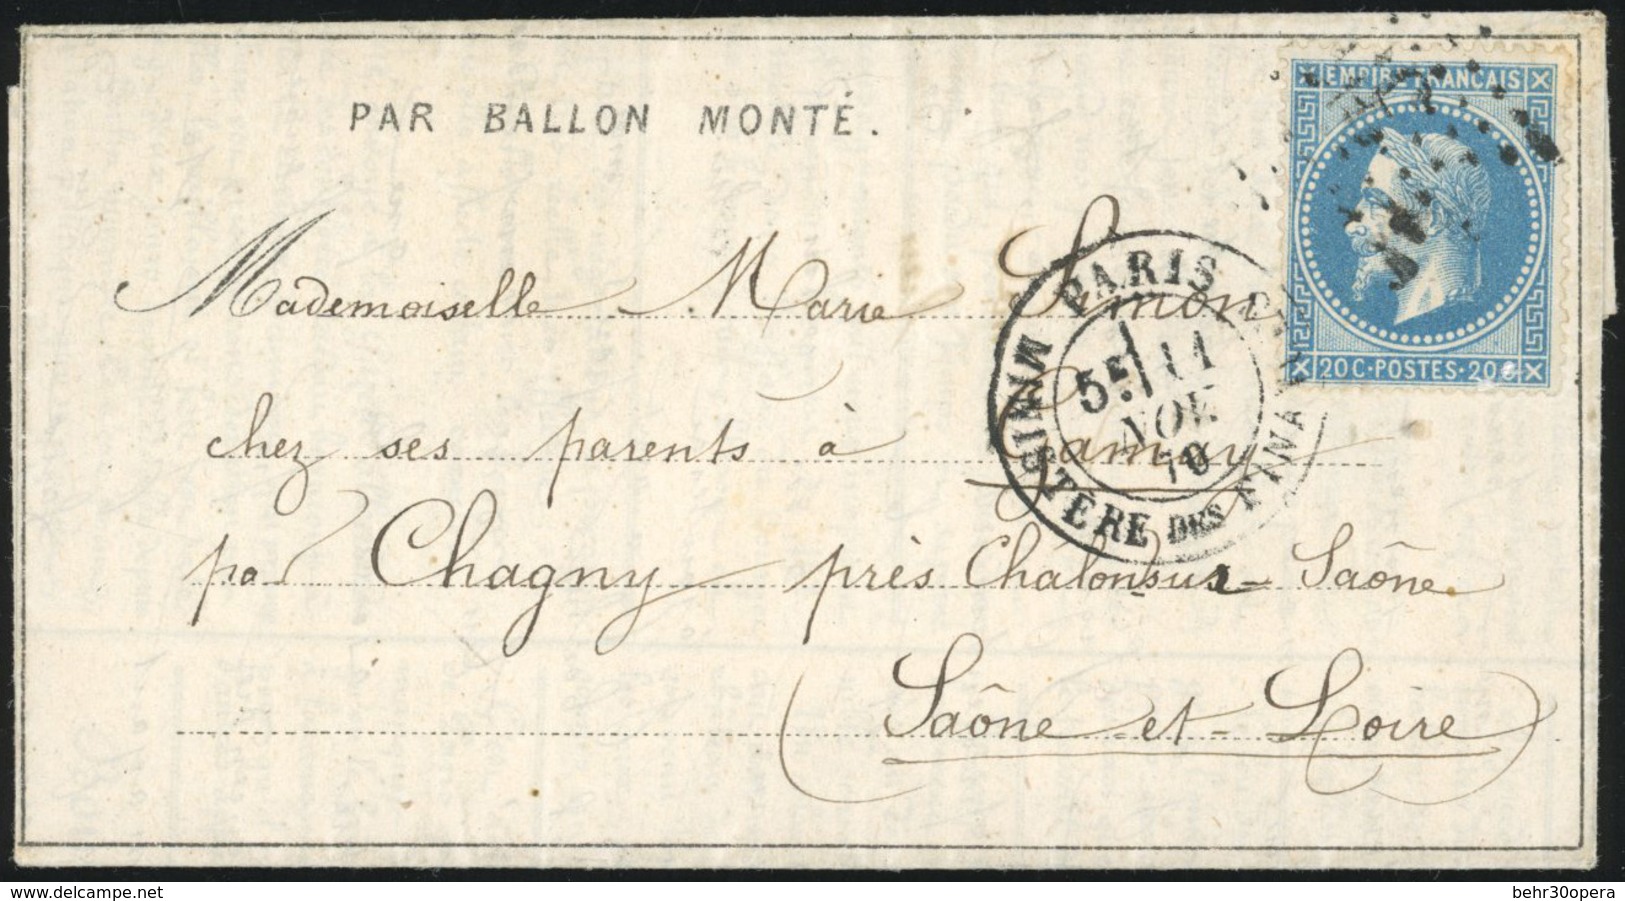 PAR BALLON MONTÉ.
EMPIRE FRANÇAIS
20 C · POSTES · 20 C
Mademoiselle Marie Simon
PARIS
MINISTÈRE DES FINA
5E 11
NOV.
70
chez ses parents à Gamay
par Chagny près Châlonsur-Saône
(Saône et Loire)
www.delcampe.net
behr30opera